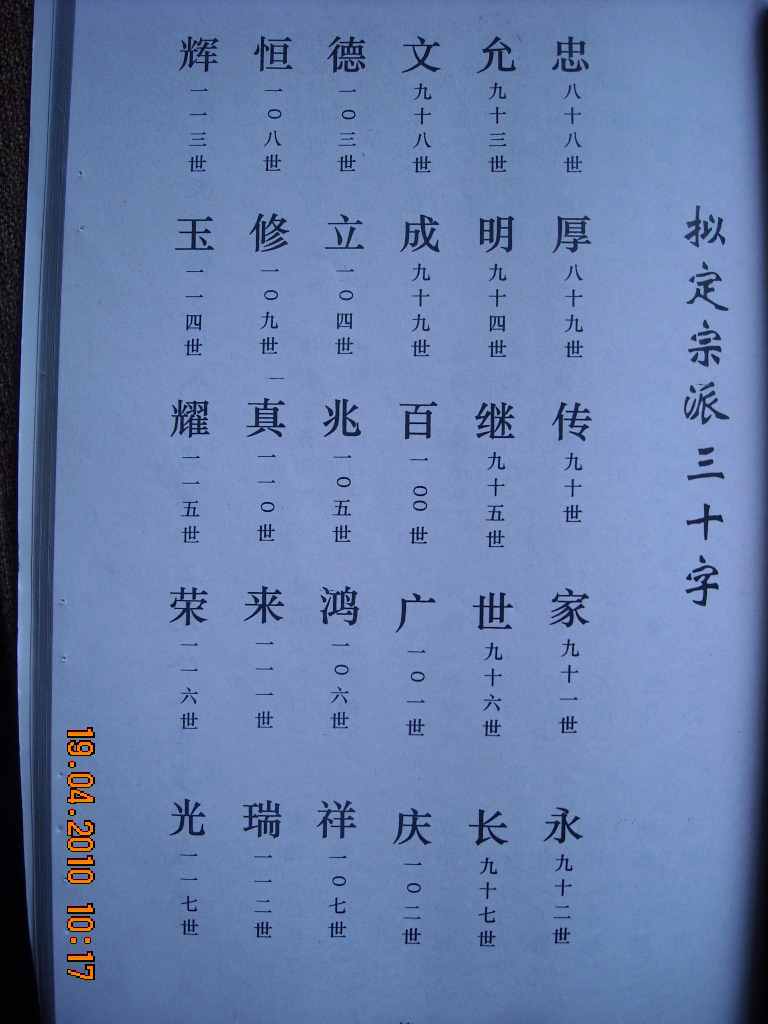 拟定宗派三十字
忠 厚 传 家 永
八十八世 八十九世 九十世 九十一世 九十二世
允 明 继 世 长
九十三世 九十四世 九十五世 九十六世 九十七世
文 成 百 广 庆
九十八世 九十九世 一〇〇世 一〇一世 一〇二世
德 立 兆 鸿 祥
一〇三世 一〇四世 一〇五世 一〇六世 一〇七世
恒 修 真 来 瑞
一〇八世 一〇九世 一一〇世 一一一世 一一二世
辉 玉 耀 荣 光
一一三世 一一四世 一一五世 一一六世 一一七世
19.04.2010 10:17